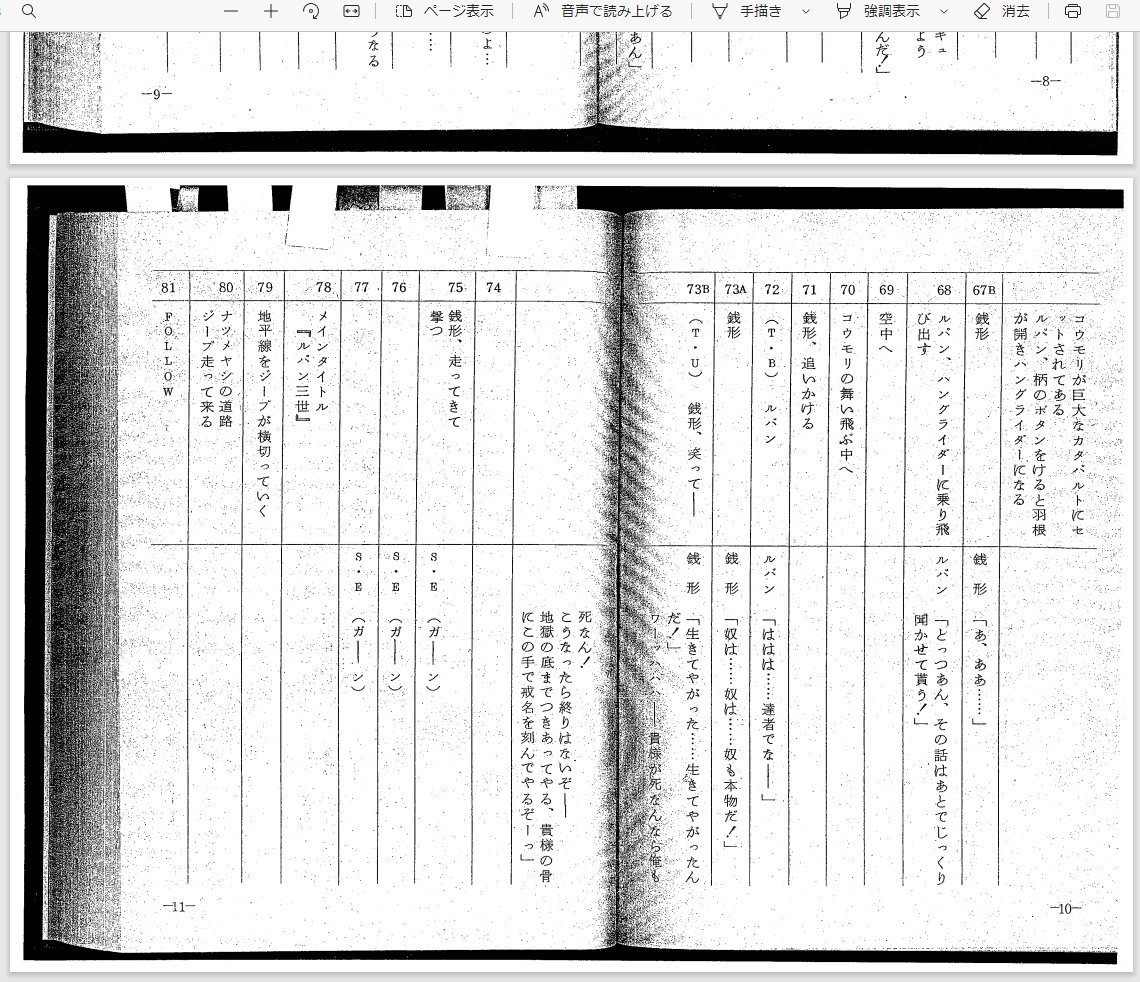 ページ表示
音声で読み上げる
手描き
強調表示
消去
キュ
よう
んだ!」
あん」
よ…
……
うなる
—8—
—9—
コウモリが巨大なカタパルトにセ
ットされてある
ルパン、柄のボタンをけると羽根
が開きハングライダーになる
67B
銭形
銭形
「あ、ああ……」
68
ルパン、ハングライダーに乗り飛
び出す
ルパン
「とっつあん、その話はあとでじっくり
聞かせて貰う!」
69
空中へ
70
コウモリの舞い飛ぶ中へ
71
銭形、追いかける
72
(T・B) ルパン
ルパン
「ははは……達者でな——」
73A
銭形
銭形
「奴は……奴は……奴も本物だ!」
73B
(T・U) 銭形、笑って——
銭形
「生きてやがった……生きてやがったん
だ!」
ワーッハハハ——貴様が死なんなら俺も
—10—
死なん!
こうなったら終りはないぞ——
地獄の底までつきあってやる、貴様の骨
にこの手で戒名を刻んでやるぞーっ」
74
75
銭形、走ってきて
撃つ
S・E (ガ——ン)
76
S・E (ガ——ン)
77
S・E (ガ——ン)
78
メインタイトル
『ルパン三世』
79
地平線をジープが横切っていく
80
ナツメヤシの道路
ジープ走って来る
81
FOLLOW
—11—